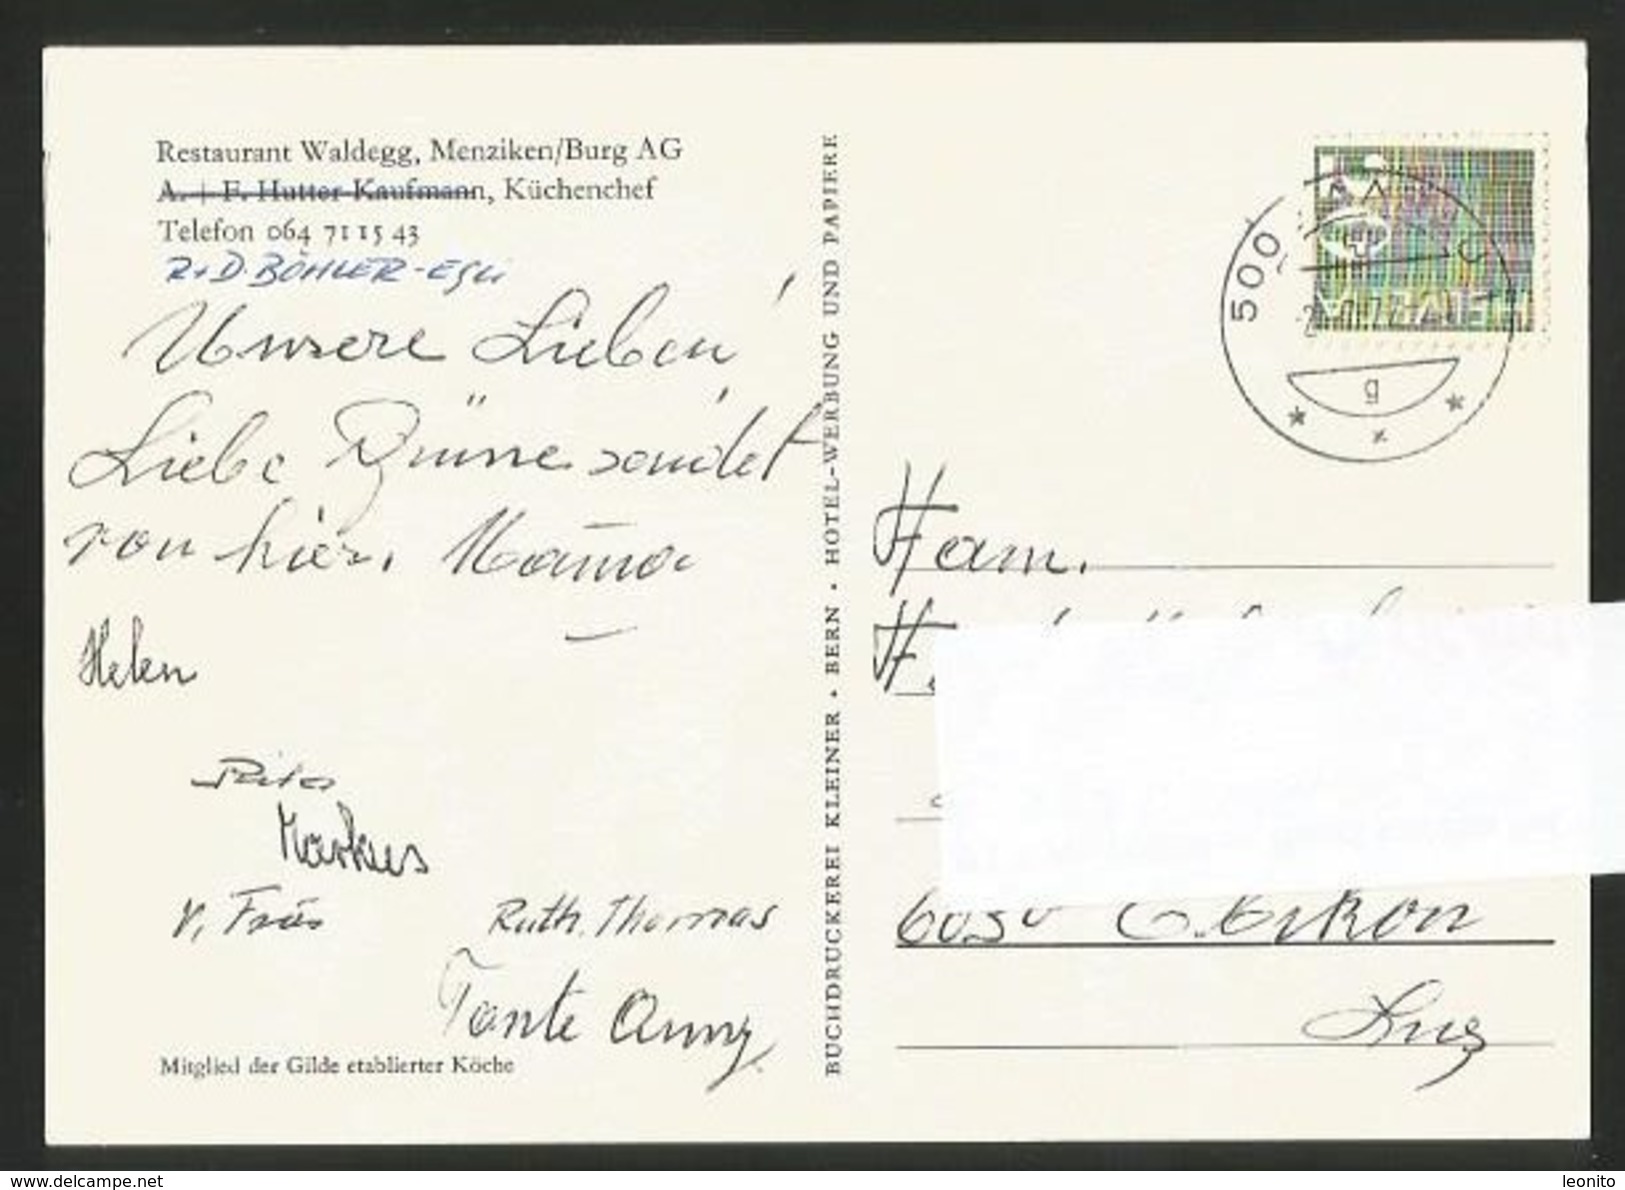 Restaurant Waldegg, Menziken/Burg AG
A. + F. Hutter-Kaufmann, Küchenchef
Telefon 064 71 15 43
R+D. BÖHLER-EGLI
Unsere Lieben
Liebe sendet
von hier. Mama
Helen
Rita
Markus
V. Ruth. Thomas
Tante Anny
Mitglied der Gilde etablierter Köche
BUCHDRUCKEREI KLEINER · BERN · HOTEL-WERBUNG UND PAPIERE
500
HELVETIA
g
Fam.
6030
Luz
delcampe.net
leonito